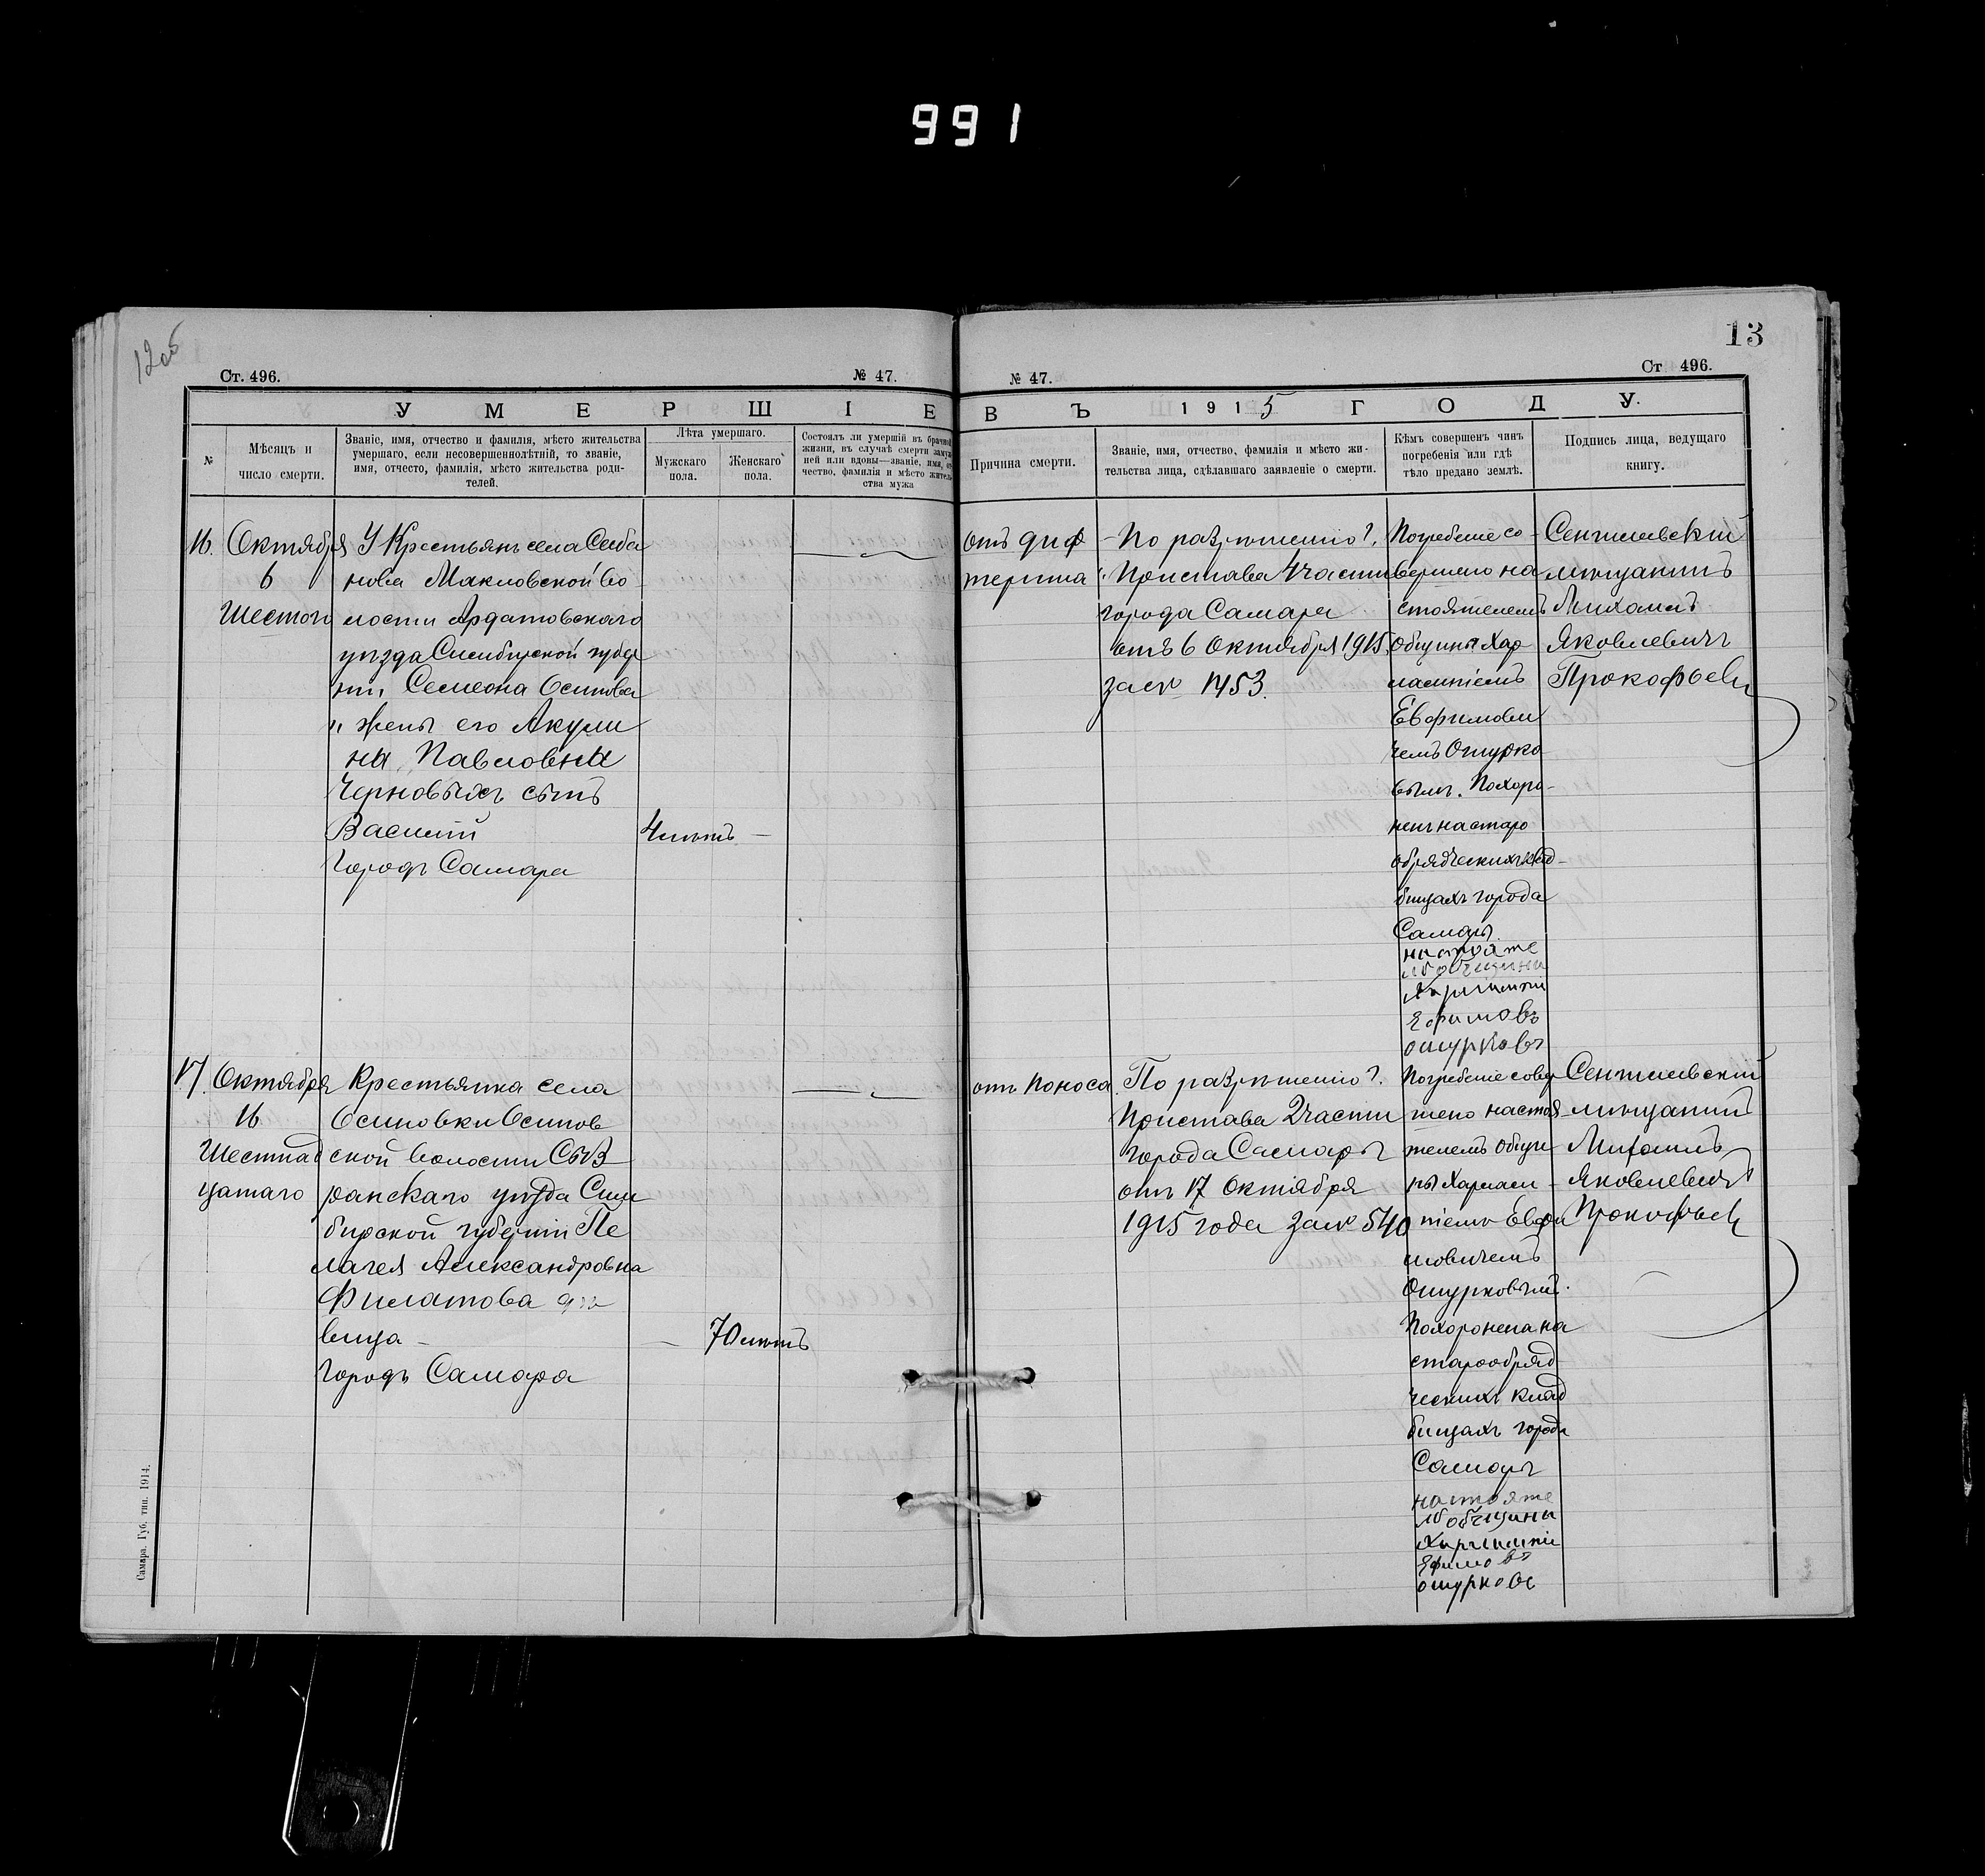 991
12об
13
Ст. 496.
№ 47.
№ 47.
Ст 496.
УМЕРШІЕ
ВЪ 1915 ГОДУ.
№
Мѣсяцъ и
число смерти.
Званіе, имя, отчество и фамилія, мѣсто жительства
умершаго, если несовершеннолѣтній, то званіе,
имя, отчесто, фамилія, мѣсто жительства роди-
телей.
Лѣта умершаго.
Мужскаго
пола.
Женскаго
пола.
Состоялъ ли умершій въ брачной
жизни, въ случаѣ смерти замуж
ней или вдовы—званіе, имя, от
чество, фамилія и мѣсто житель
ства мужа
Причина смерти.
Званіе, имя, отчество, фамилія и мѣсто жи-
тельства лица, сдѣлавшаго заявленіе о смерти.
Кѣмъ совершенъ чинъ
погребенія или гдѣ
тѣло предано землѣ.
Подпись лица, ведущаго
книгу.
16.
Октября
6
Шестого
У Крестьянъ села
нова Макловской во
лости Ардатовского
уѣзда Симбирской губер
ніи Семеона Осипова
и жены его Акули
ны Павловны
Черновыхъ сынъ
Василій
городъ Самара
4 лѣтъ —
отъ диф
терита
По разрѣшенію г.
Пристава 4 части
города Самары
отъ 6 Октября 1915
за № 1453.
Погребеніе со-
вершено на
стоятелемъ
Общины Хар
лампіемъ
Евфимови
чемъ Ошурко
вымъ. Похоро-
ненъ на старо
обрядческихъ клад-
бищахъ города
Самары.
настояте
ль общины
Харлампій
Ефимовъ
ошурковъ
Сенгилевскій
мѣщанинъ
Михаилъ
Яковлевичъ
Прокофьевъ
17.
Октября
16
Шестнад
цатаго
Крестьянка села
Осиновки Осинов
ской волости Сыз
ранскаго уѣзда Сим
бирской губерніи Пе
лагея Александровна
Филатова дѣ
вица —
городъ Самара
— 70 лѣтъ
отъ поноса
По разрѣшенію г.
Пристава 2 части
города Самары
отъ 17 Октября
1915 года за № 540
Погребеніе совер
шено настоя
телемъ Общи
ны Харлам
піемъ Евфи
мовичемъ
Ошурковымъ.
Похоронена на
старообряд
ческихъ клад
бищахъ города
Самары
настояте
ль общины
Харлампій
Ефимовъ
ошурковъ
Сенгилевскій
мѣщанинъ
Михаилъ
Яковлевичъ
Прокофьевъ
Самара. Губ. тип. 1914.